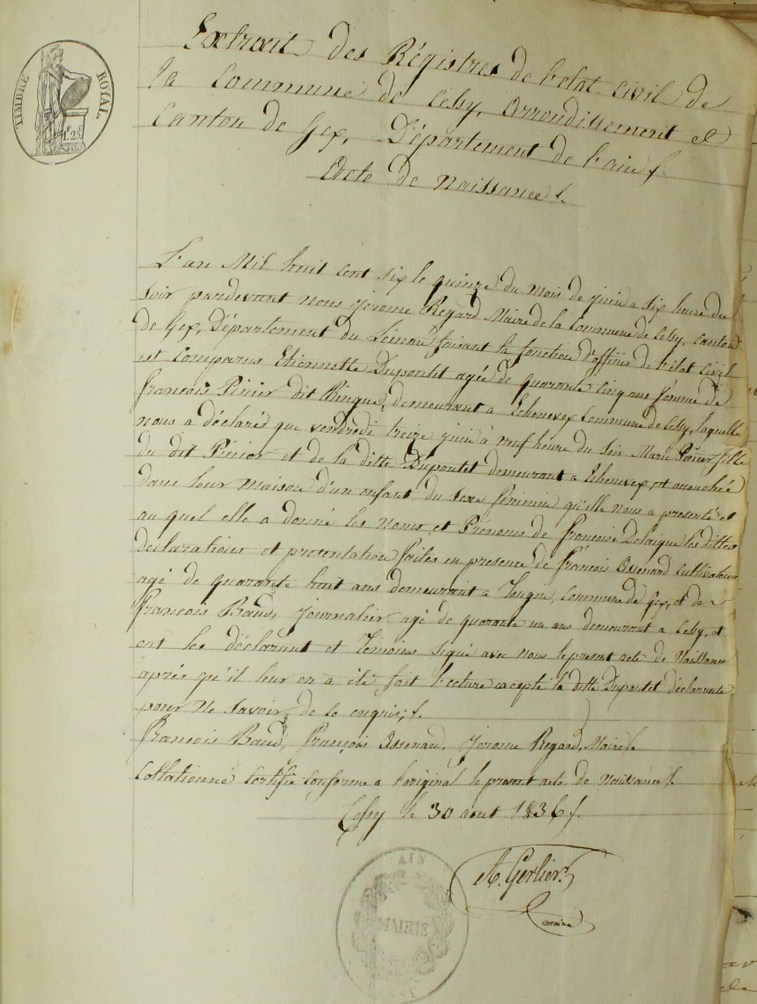 TIMBRE ROYAL
1F 25
Extrait des Régistres de l'etat civil de
la Commune de Cessy, arrondissement et
Canton de Gex, Département de l'ain /.
Acte de Naissance /.
L'an Mil huit cent six le quinze du mois de juin a six heure du
soir pardevant nous Jerome Regard Maire de la Commune de Cessy, canton
de Gex, Département du Léman faisant la fonction d'officié de l'etat civil
est Comparue Etiennette Dupontet agée de quarante cinq ans femme de
françois Pinier dit demeurant a Echenevex Commune de Cessy, laquelle
nous a déclaré que vendredi treize juin à neuf heure du soir Marie fille
du dit Pinier et de la ditte Dupontet demeurant a Echenevex, est acouchée
dans leur maison d'un enfant du sexe féminin qu'elle nous a presenté et
au quel elle a donné les noms et Prénoms de françoise les dittes
declarations et presentation faites en presence de françois cultivateur
agé de quarante huit ans demeurant a commune de Gex, et de
françois Baud, journalier agé de quarante un ans demeurant a Cessy, et
ont les déclarant et Temoins signé avec nous le present acte de Naissance
après qu'il leur en a été fait lecture excepté la ditte Dupontet déclarante
pour ne savoir de ce enquis, /.
francois Baud, françois Jerome Regard, Maire
Collationné certifié conforme a l'original le present acte de Naissance /.
Cessy le 30 aout 1836 /.
A. Gerlier
maire
AIN
MAIRIE